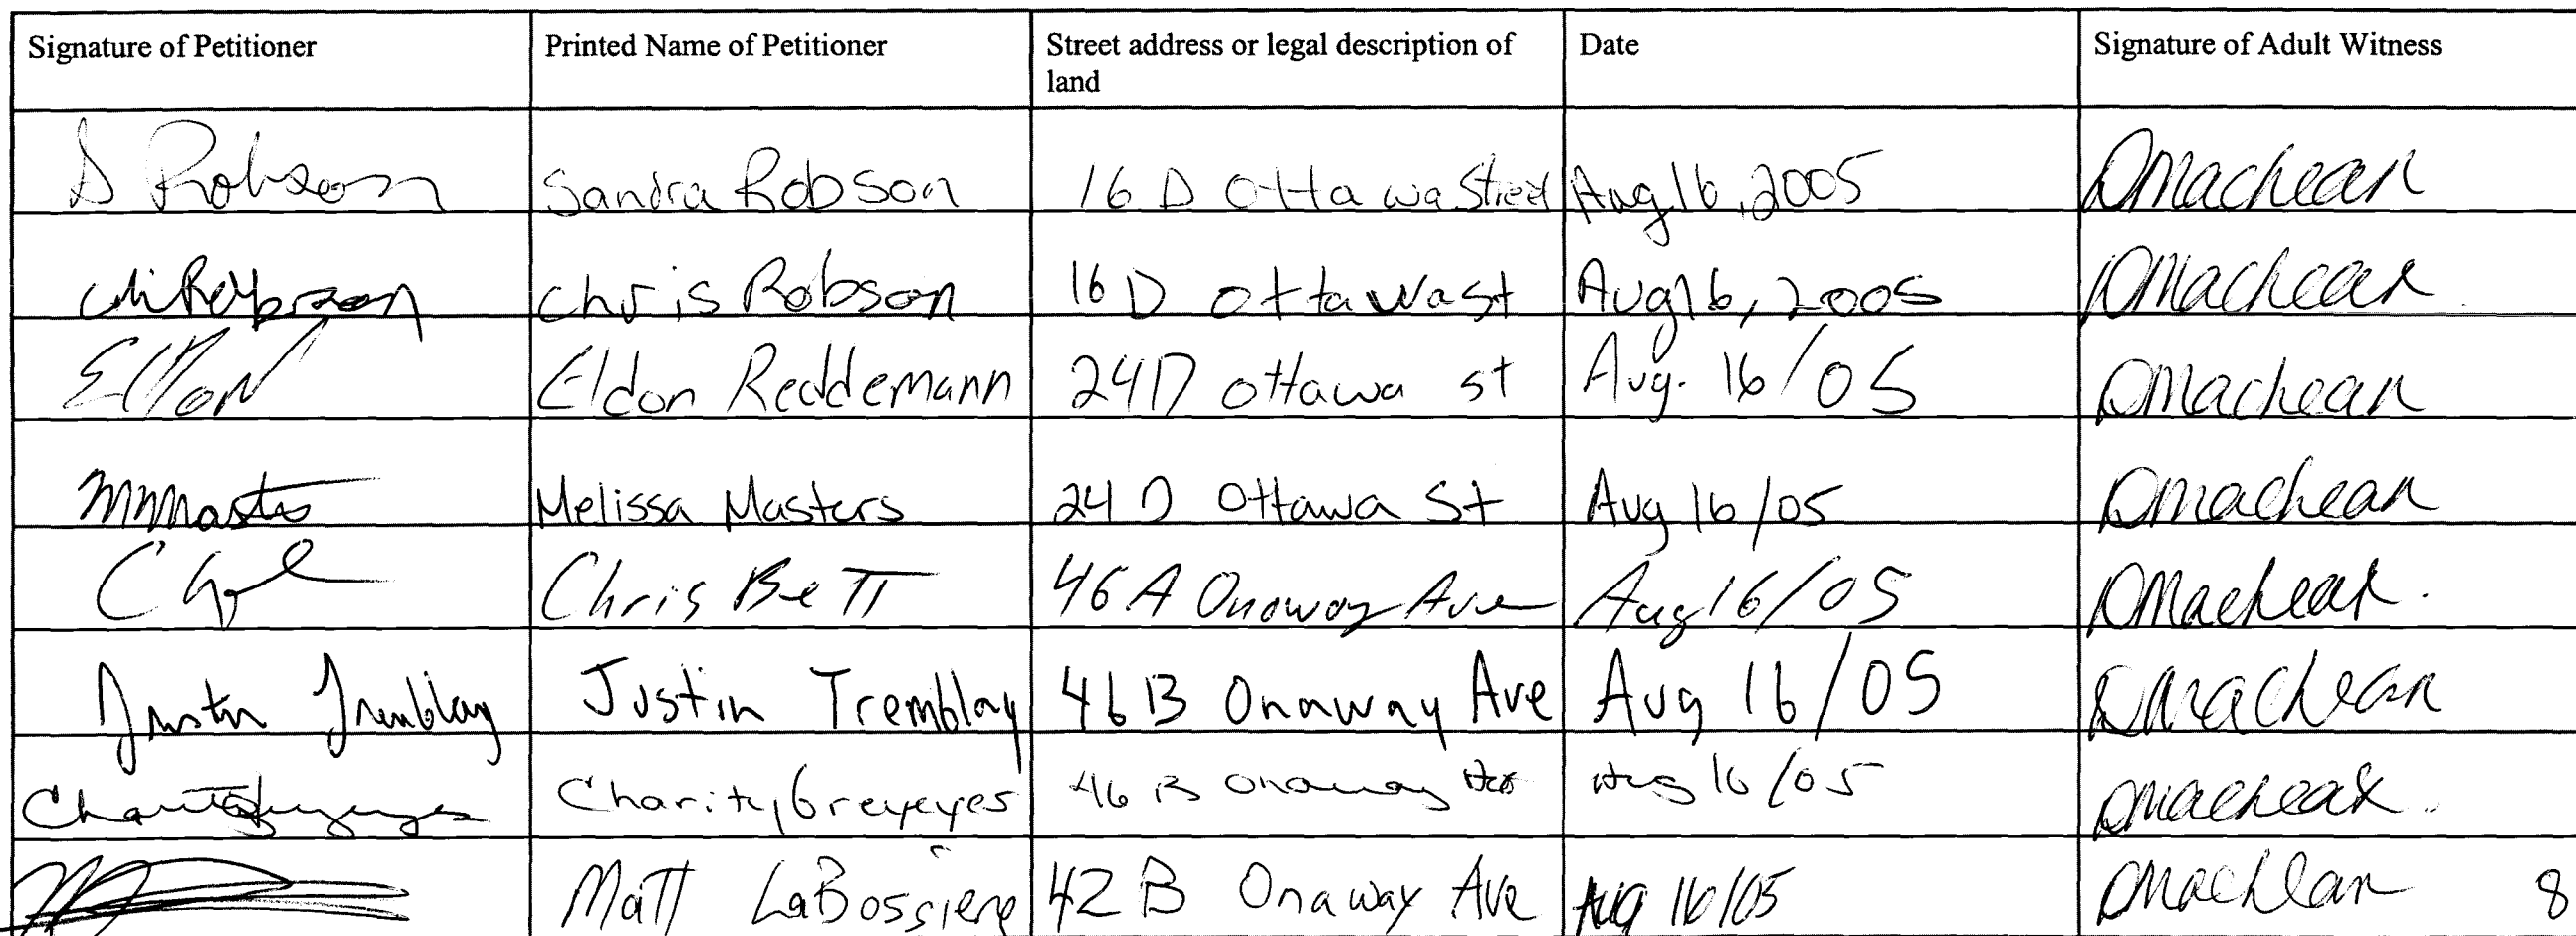 Signature of Petitioner Printed Name of Petitioner Street address or legal description of land Date Signature of Adult Witness
S Robson Sandra Robson 16 D Ottawa Street Aug 16, 2005 DMacLean
Chris Robson 16 D Ottawa st Aug 16, 2005 DMacLean
Eldon Reddemann 24D Ottawa st Aug. 16/05 DMacLean
MMasters Melissa Masters 24 D Ottawa St Aug 16/05 DMacLean
Chris Bett 46 A Onaway Ave Aug 16/05 DMacLean.
Justin Tremblay Justin Tremblay 46B Onaway Ave Aug 16/05 DMacLean
Charity Greyeyes 46 B Onaway Ave Aug 16/05 DMacLean.
Matt LaBossiere 42 B Onaway Ave Aug 16/05 DMacLean 8